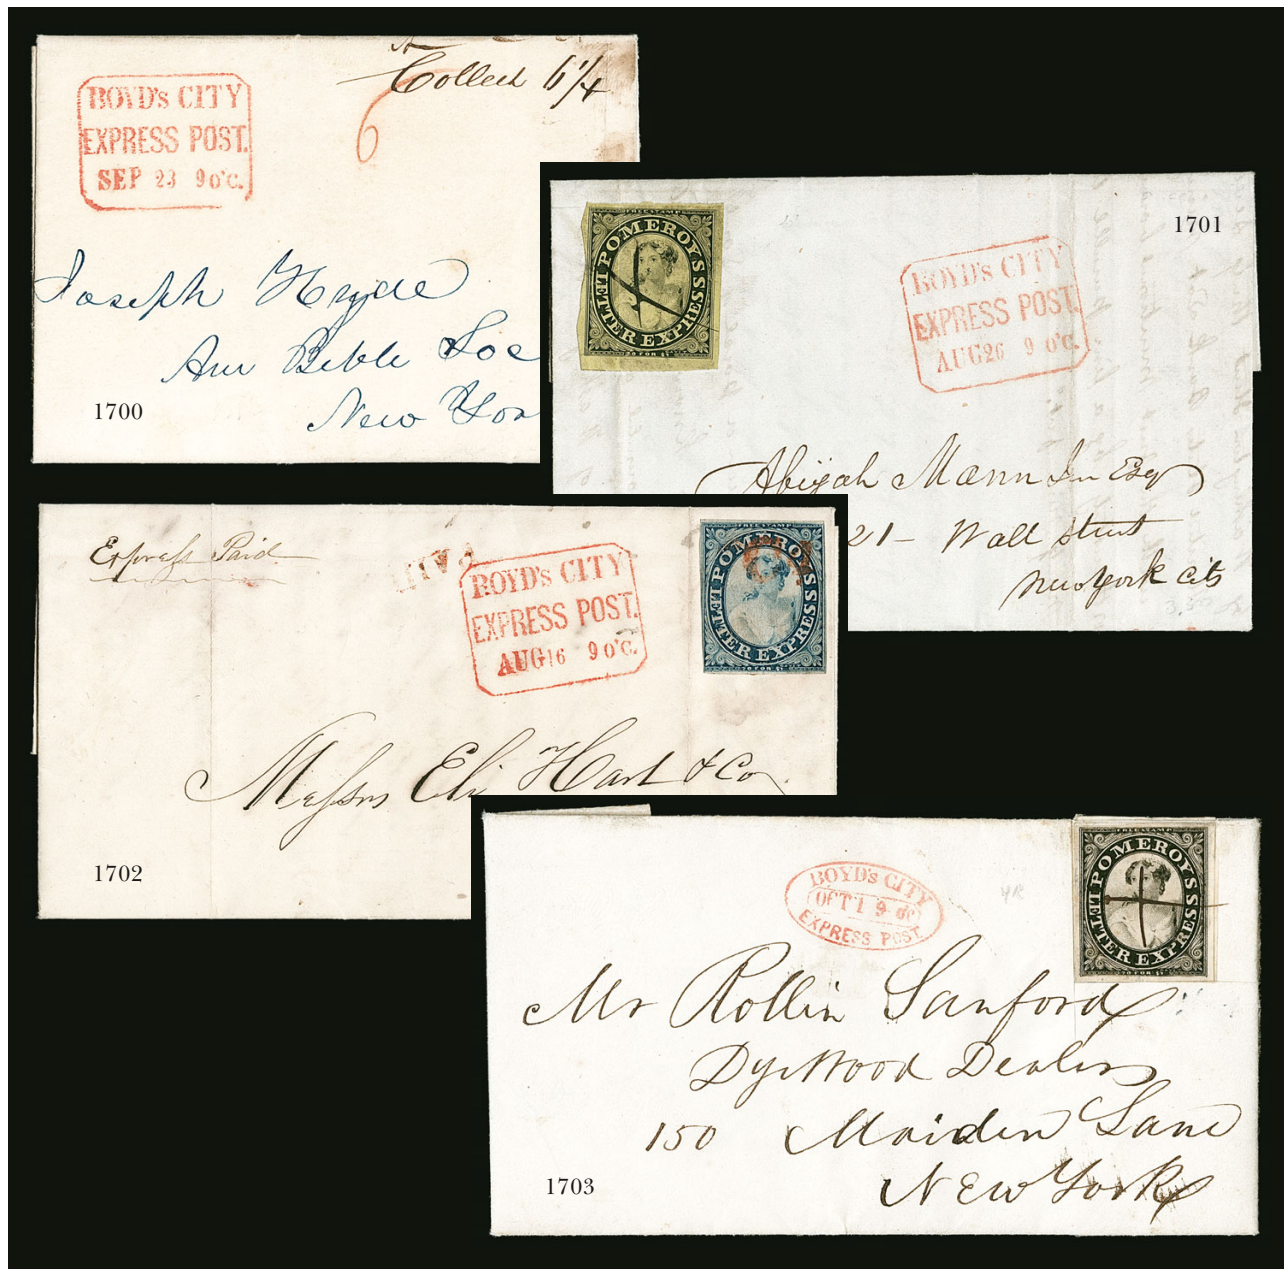 Collect 6 1/4
6
BOYD's CITY
EXPRESS POST.
SEP 23 9 o'C.
Joseph Hyde
Am Bible Soc
New Yor
1700
FREE STAMP
POMEROY'S
LETTER EXPRESS
20 FOR $1
1701
BOYD's CITY
EXPRESS POST.
AUG 26 9 o'C.
Abijah Mann Jun Esqr
21 - Wall Street
New York City
Express Paid
PAID
BOYD's CITY
EXPRESS POST.
AUG 16 9 o'C.
FREE STAMP
POMEROY'S
LETTER EXPRESS
20 FOR $1
Messrs Eli Hart & Co
1702
BOYD's CITY
OCT 1 9 oC
EXPRESS POST.
FREE STAMP
POMEROY'S
LETTER EXPRESS
20 FOR $1
Mr Rollin Sanford
Dye Wood Dealers
150 Maiden Lane
New York
1703